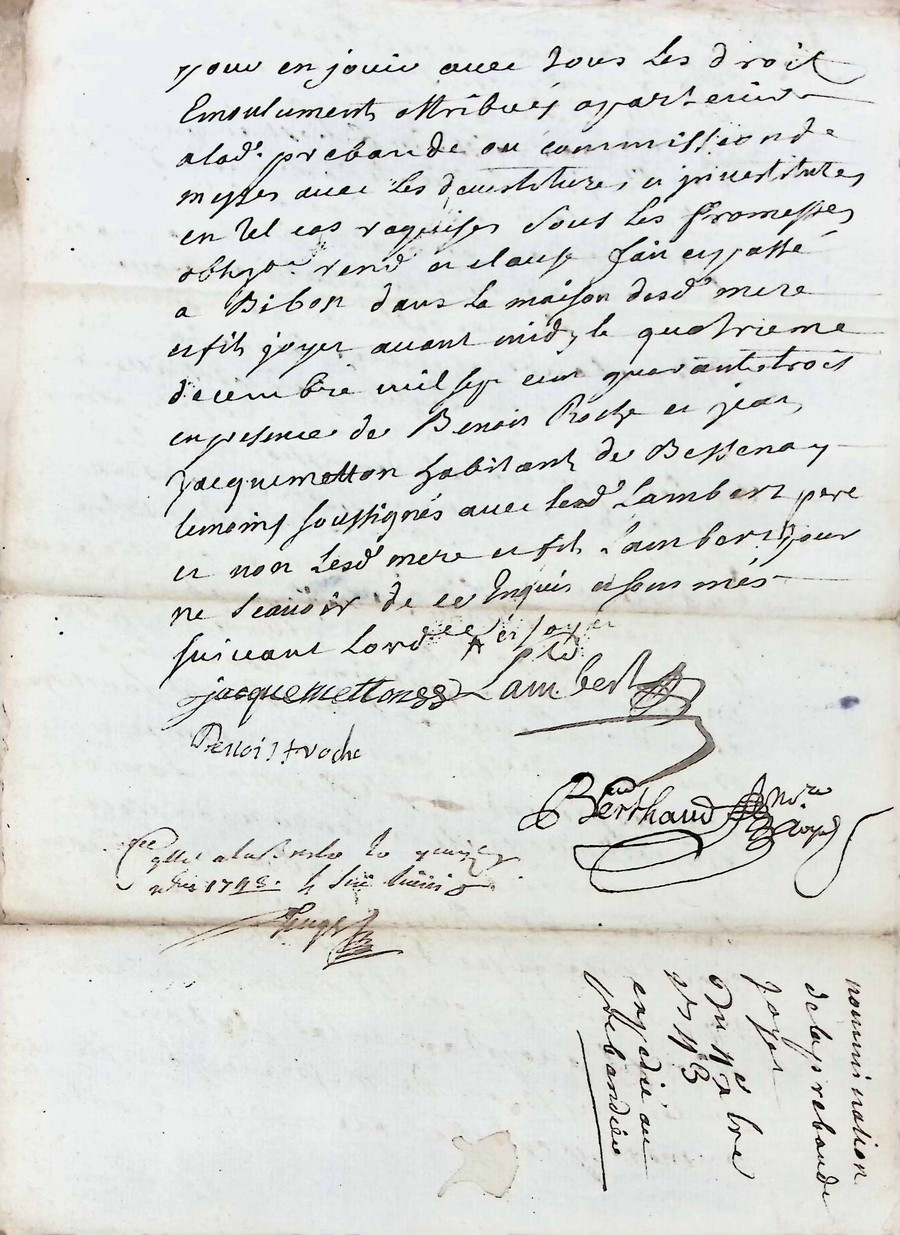 pour en jouir avec tous les droit
Emoulument attribués apartenir
a lad. prebande ou commission de
messes avec les
en tel cas requises sous les promesses
oblig.on rend.on et clause fait et passé
a Bibon dans la maison desd. mere
et fils joyet avant midy le quatrieme
decembre mil sept cent quarante trois
en presence de Benoit Roche et jean
jacquemetton habitant de Bessenay
temoins soussignés avec lesd. Lambert pere
et non lesd. mere et fils Lambert pour
ne scavoir de ce Enquis et sommés
suivant Lord.ce
jacquemetton Lambert
Benoist roche
Berthaud no.re royal
a la Bresle le quinze
1743. 
nommination
de la prebande
joyet
du 4e xbre
1743
expedié au
prebandier